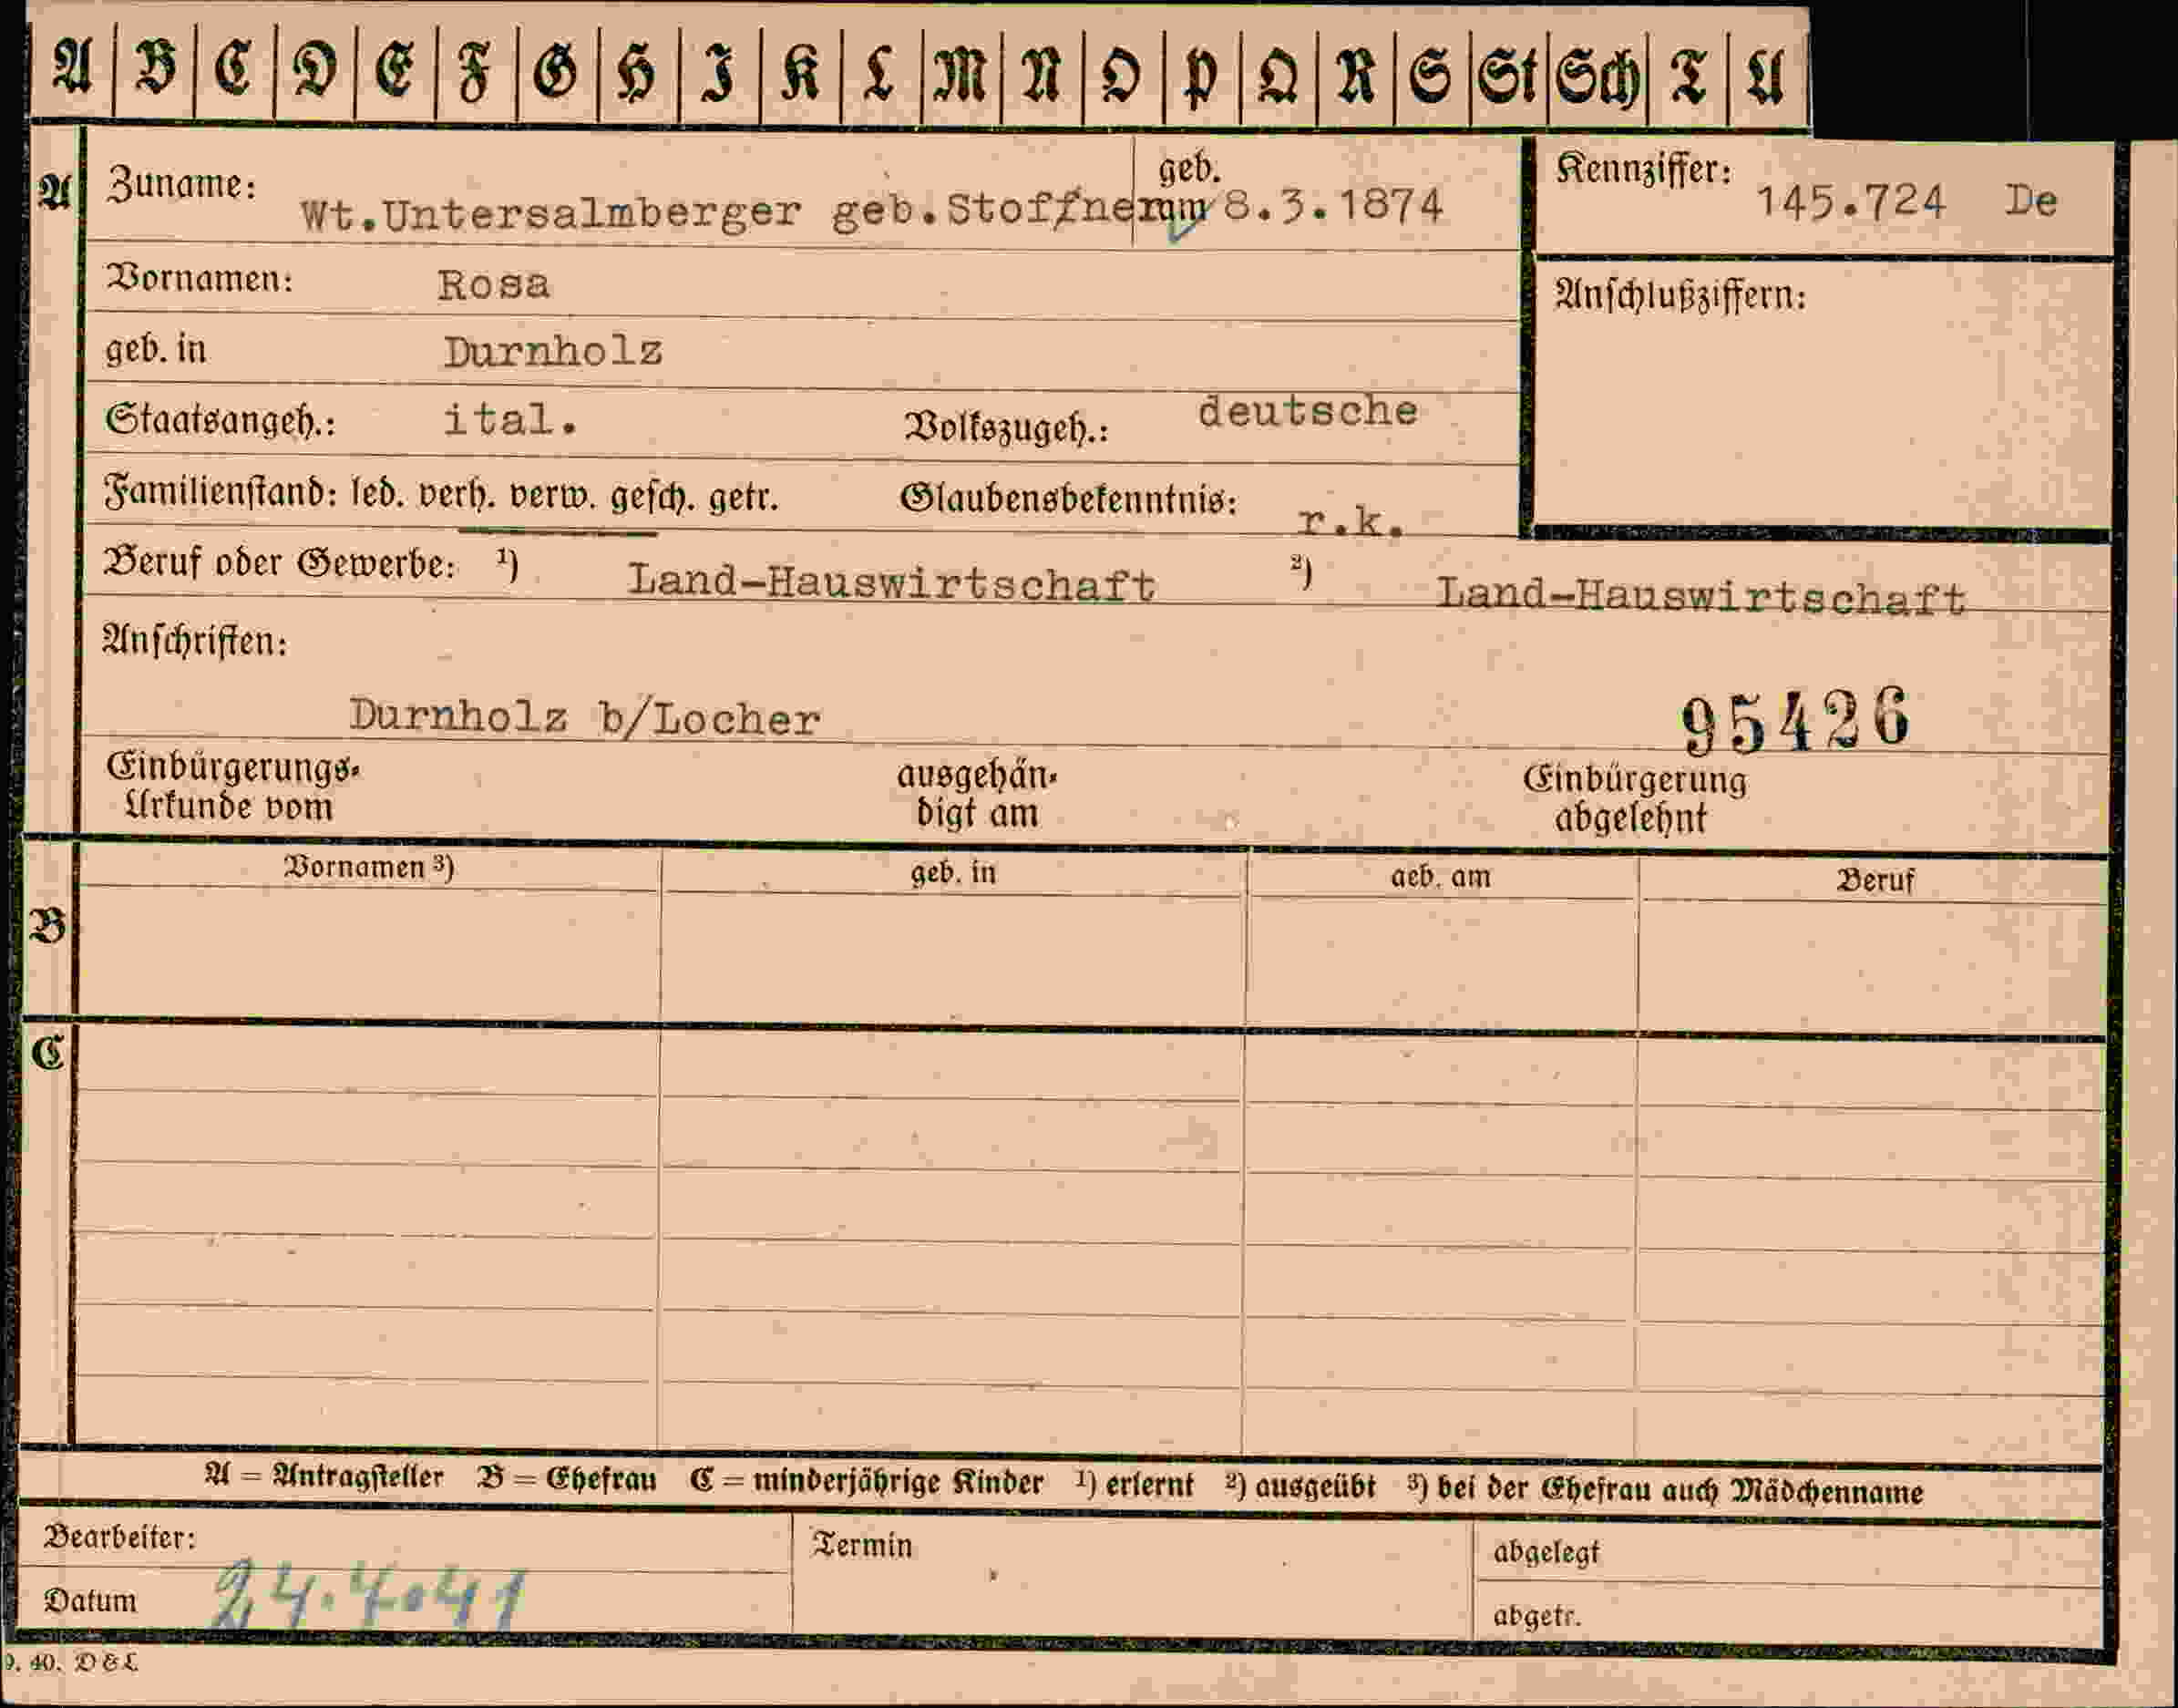 A B C D E F G H I K L M N O P Q R S St Sch T U
A Zuname: Wt.Untersalmberger geb.Stoffner geb. am 8.3.1874 Kennziffer: 145.724 De
Vornamen: Rosa Anschlußziffern:
geb. in Durnholz
Staatsangeh.: ital. Volkszugeh.: deutsche
Familienstand: led. verh. verw. gesch. getr. Glaubensbekenntnis: r.k.
Beruf oder Gewerbe: 1) Land-Hauswirtschaft 2) Land-Hauswirtschaft
Anschriften:
Durnholz b/Locher 95426
Einbürgerungs- ausgehän- Einbürgerung
Urkunde vom digt am abgelehnt
Vornamen 3) geb. in geb. am Beruf
B
C
A = Antragsteller B = Ehefrau C = minderjährige Kinder 1) erlernt 2) ausgeübt 3) bei der Ehefrau auch Mädchenname
Bearbeiter: Termin abgelegt
Datum 24.4.41 abgetr.
9. 40. D & L